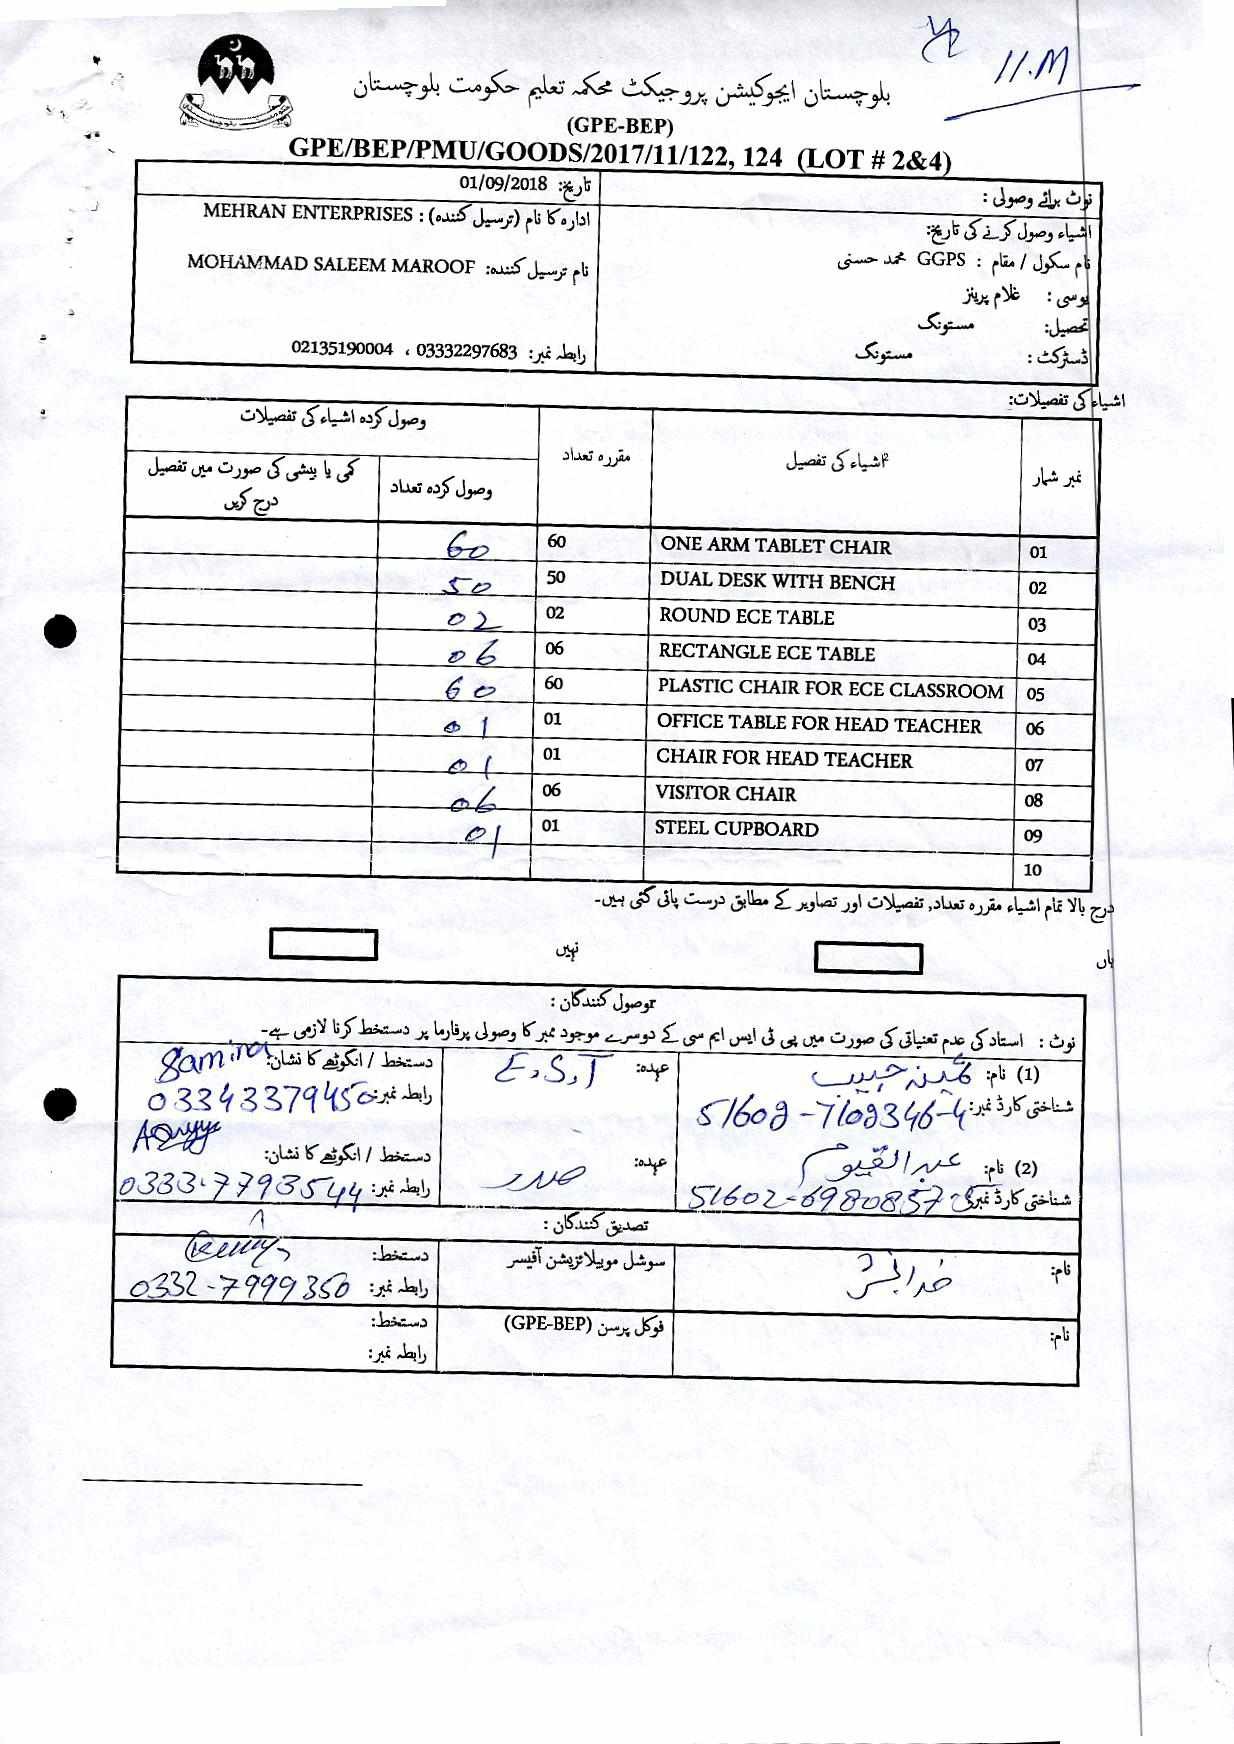 11.M
بلوچستان ایجوکیشن پروجیکٹ محکمہ تعلیم حکومت بلوچستان
(GPE-BEP)
GPE/BEP/PMU/GOODS/2017/11/122, 124 (LOT # 2&4)
نوٹ برائے وصولی :
اشیاء وصول کرنے کی تاریخ:
نام سکول / مقام : GGPS محمد حسنی
یوسی : غلام پرینز
تحصیل: مستونگ
ڈسٹرکٹ : مستونگ
تاریخ: 01/09/2018
ادارہ کا نام (ترسیل کنندہ) : MEHRAN ENTERPRISES
نام ترسیل کنندہ: MOHAMMAD SALEEM MAROOF
رابطہ نمبر: 03332297683 ، 02135190004
اشیاء کی تفصیلات:
نمبر شمار اشیاء کی تفصیل مقررہ تعداد وصول کردہ اشیاء کی تفصیلات
وصول کردہ تعداد کمی یا بیشی کی صورت میں تفصیل درج کریں
01 ONE ARM TABLET CHAIR 60 60
02 DUAL DESK WITH BENCH 50 50
03 ROUND ECE TABLE 02 02
04 RECTANGLE ECE TABLE 06 06
05 PLASTIC CHAIR FOR ECE CLASSROOM 60 60
06 OFFICE TABLE FOR HEAD TEACHER 01 01
07 CHAIR FOR HEAD TEACHER 01 01
08 VISITOR CHAIR 06 06
09 STEEL CUPBOARD 01 01
10
درج بالا تمام اشیاء مقررہ تعداد, تفصیلات اور تصاویر کے مطابق درست پائی گئی ہیں۔
ہاں نہیں
وصول کنندگان :
نوٹ : استاد کی عدم تعیناتی کی صورت میں پی ٹی ایس ایم سی کے دوسرے موجود ممبر کا وصولی پرفارما پر دستخط کرنا لازمی ہے۔
(1) نام: حبیب عہدہ: E.S.T دستخط / انگوٹھے کا نشان: Samina
شناختی کارڈ نمبر: 51602-7102346-4 رابطہ نمبر: 03343379450
(2) نام: عبدالقیوم عہدہ: صدر دستخط / انگوٹھے کا نشان:
شناختی کارڈ نمبر: 51602-6980857-5 رابطہ نمبر: 0333-7793544
تصدیق کنندگان :
نام: خدابخش سوشل موبیلائزیشن آفیسر دستخط:
رابطہ نمبر: 0332-7999350
نام: فوکل پرسن (GPE-BEP) دستخط:
رابطہ نمبر: